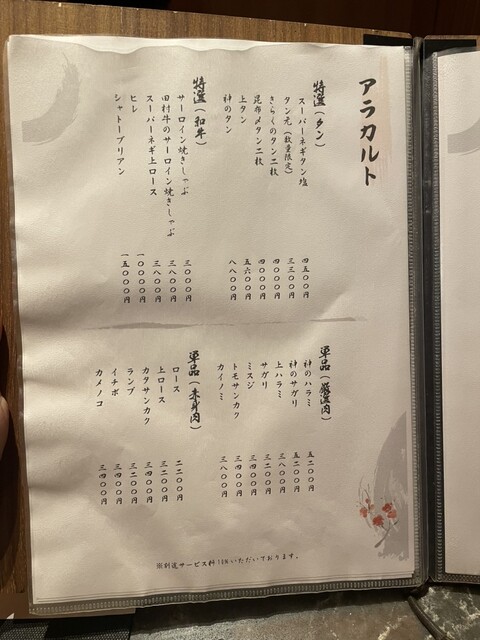 アラカルト
特選(タン)
スーパーネギタン塩 四五〇〇円
タン元(数量限定) 三三〇〇円
きらくのタン二枚 四〇〇〇円
昆布〆タン二枚 四〇〇〇円
上タン 五六〇〇円
神のタン 八八〇〇円
特選(和牛)
サーロイン焼きしゃぶ 三〇〇〇円
田村牛のサーロイン焼きしゃぶ 三八〇〇円
スーパーネギ上ロース 三八〇〇円
ヒレ 一〇〇〇〇円
シャトーブリアン 一五〇〇〇円
単品(厳選肉)
神のハラミ 五二〇〇円
神のサガリ 五二〇〇円
上ハラミ 三八〇〇円
サガリ 三二〇〇円
ミスジ 三四〇〇円
トモサンカク 三四〇〇円
カイノミ 三八〇〇円
単品(赤身肉)
ロース 二二〇〇円
上ロース 三二〇〇円
カタサンカク 三四〇〇円
ランプ 三二〇〇円
イチボ 三四〇〇円
カメノコ 三四〇〇円
※別途サービス料10%いただいております。